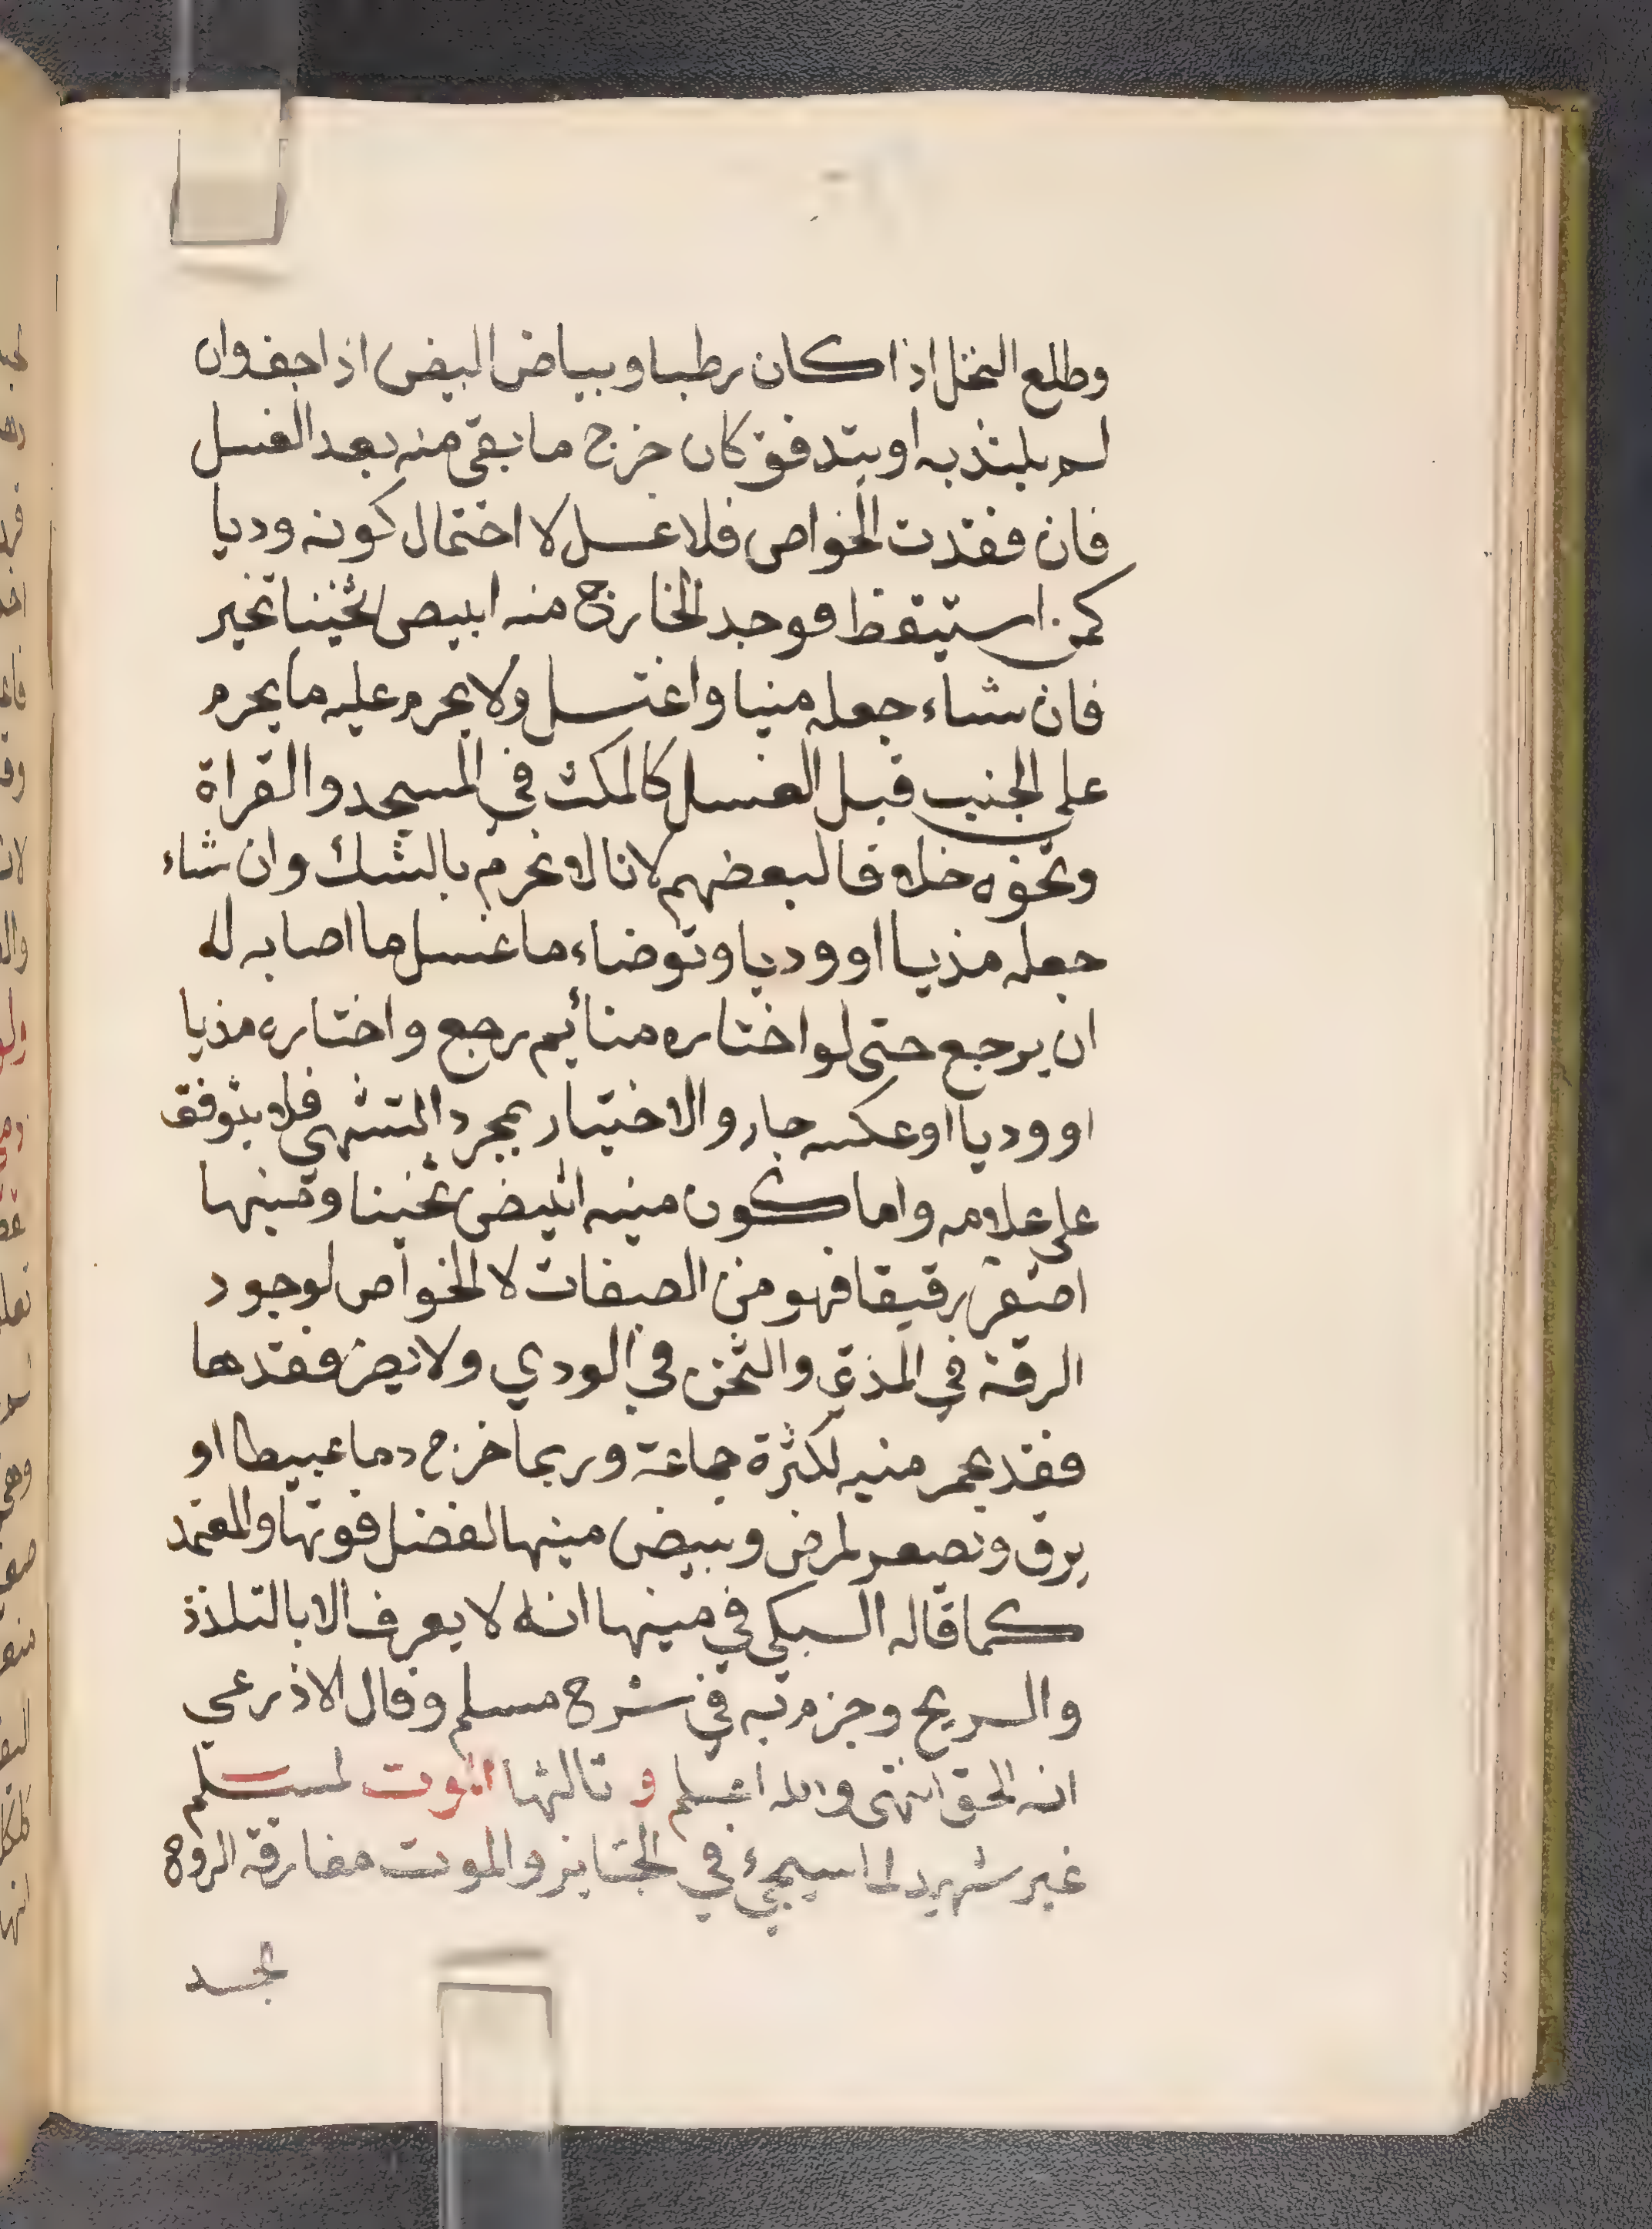 وطلع النخل اذا كان رطبا وبياض البيض اذا جف وان
لم يلتذ به او يتدفق كان خرج ما بقي منه بعد الغسل
فان فقدت الخواص فلا غسل لا احتمال كونه وديا
كمن استيقظ فوجد الخارج منه ابيض ثخينا تخير
فان شاء جعله منيا واغتسل ولا يحرم عليه ما يحرم
على الجنب قبل الغسل كالمكث في المسجد والقراة
ونحوه خلافا لبعضهم لانا لا نحرم بالشك وان شاء
جعله مذيا او وديا وتوضاء ما غسل ما اصابه له
ان يرجع حتى لو اختاره منائيم رجع واختاره مذيا
او وديا او عكسه جاز والاختيار بمجرد التشهي فلا يتوقف
على علامه واما كون منيه ابيض ثخينا ومنيها
اصفر رقيقا فهو من الصفات لا الخواص لوجود
الرقة في المذي والثخن في الودي ولا يضر فقدها
فقد يحمر منيه لكثرة جماعة وربما خرج دما عبيطا او
يرق ويصفر لمرض ويبيض منيها لفضل قوتها والمعتمد
كما قاله السبكي في منيها انه لا يعرف الا بالتلذذ
والريح وجزم به في شرح مسلم وقال الاذرعي
انه الحق انتهى والله اعلم و ثالثها الموت لمسلم
غير شهيد لما سيجيء في الجنايز والموت مفارقة الروح
لجسد